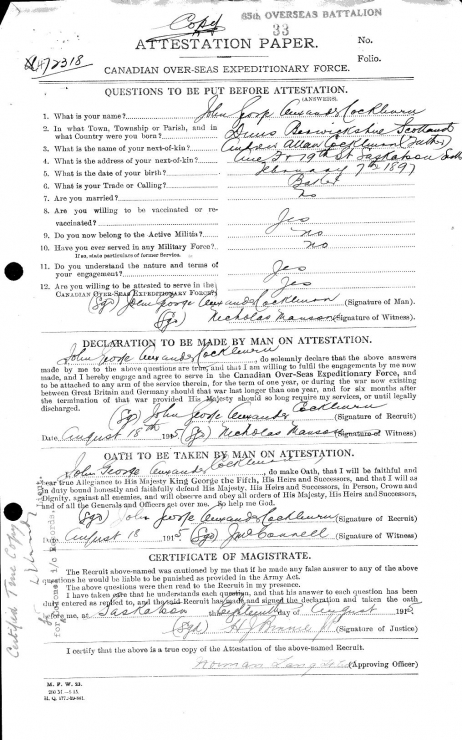 65th OVERSEAS BATTALION
Copy
33
ATTESTATION PAPER.
No.
Folio.
472318
CANADIAN OVER-SEAS EXPEDITIONARY FORCE.
QUESTIONS TO BE PUT BEFORE ATTESTATION.
(ANSWERS).
1. What is your name? John George Alexander Cockburn
2. In what Town, Township or Parish, and in
what Country were you born? Duns Berwickshire Scotland
3. What is the name of your next-of-kin? Andrew Allan Cockburn (Father)
4. What is the address of your next-of-kin? Ave 79th St Saskatoon Sask
5. What is the date of your birth? February 7th 1897
6. What is your Trade or Calling? Baker
7. Are you married? No
8. Are you willing to be vaccinated or re-
vaccinated? Yes
9. Do you now belong to the Active Militia? No
10. Have you ever served in any Military Force? No
If so, state particulars of former Service.
11. Do you understand the nature and terms of
your engagement? Yes
12. Are you willing to be attested to serve in the
CANADIAN OVER-SEAS EXPEDITIONARY FORCE? Yes
(Sgd) John George Alexander Cockburn (Signature of Man).
(Sgd) Nicholas Manson (Signature of Witness).
DECLARATION TO BE MADE BY MAN ON ATTESTATION.
I, John George Alexander Cockburn, do solemnly declare that the above answers
made by me to the above questions are true, and that I am willing to fulfil the engagements by me
now made, and I hereby engage and agree to serve in the Canadian Over-Seas Expeditionary Force, and
to be attached to any arm of the service therein, for the term of one year, or during the war now existing
between Great Britain and Germany should that war last longer than one year, and for six months after
the termination of that war provided His Majesty should so long require my services, or until legally
discharged.
(Sgd) John George Alexander Cockburn (Signature of Recruit)
Date August 18th 1915 (Sgd) Nicholas Manson (Signature of Witness)
OATH TO BE TAKEN BY MAN ON ATTESTATION.
I, John George Alexander Cockburn, do make Oath, that I will be faithful and
bear true Allegiance to His Majesty King George the Fifth, His Heirs and Successors, and that I will as
in duty bound honestly and faithfully defend His Majesty, His Heirs and Successors, in Person, Crown and
Dignity, against all enemies, and will observe and obey all orders of His Majesty, His Heirs and Successors,
and of all the Generals and Officers set over me. So help me God.
(Sgd) John George Alexander Cockburn (Signature of Recruit)
August 18 1915 (Sgd) (Signature of Witness)
CERTIFICATE OF MAGISTRATE.
The Recruit above-named was cautioned by me that if he made any false answer to any of the above
questions he would be liable to be punished as provided in the Army Act.
The above questions were then read to the Recruit in my presence.
I have taken care that he understands each question, and that his answer to each question has been
duly entered as replied to, and the said Recruit has made and signed the declaration and taken the oath
before me, at Saskatoon this day of August 1915
(Sgd) (Signature of Justice)
I certify that the above is a true copy of the Attestation of the above-named Recruit.
Norman Lang (Approving Officer)
M. F. W. 23.
Certified True Copy
for Officer i/c Records.